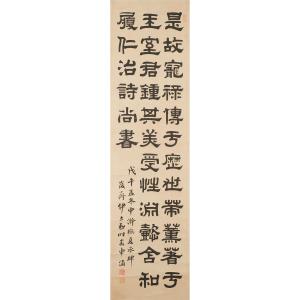 是故寵祿傳于歷世策薰著于
王室君鍾其美受性淵懿含和
履仁治詩尚書
戊午孟冬中澣臨夏承碑